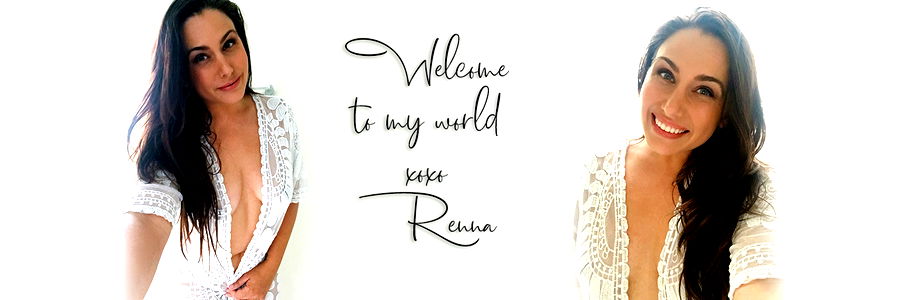 Welcome
to my world
xoxo
Renna